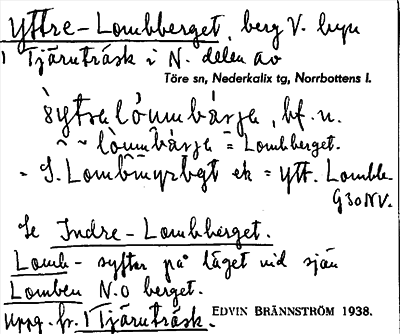 Yttre-Lombberget, berg V. byn
1 Tjärnträsk i N. delen av
Töre sn, Nederkalix tg, Norrbottens l.
bf. n.
= Lombberget.
= S. Lombmyrbgt ek = ytt. Lombb.
G30NV.
Se Indre-Lombberget.
Lomb- syftar på läget vid sjön
Lomben N.O berget.
Uppg. fr. 1 Tjärnträsk.
EDVIN BRÄNNSTRÖM 1938.